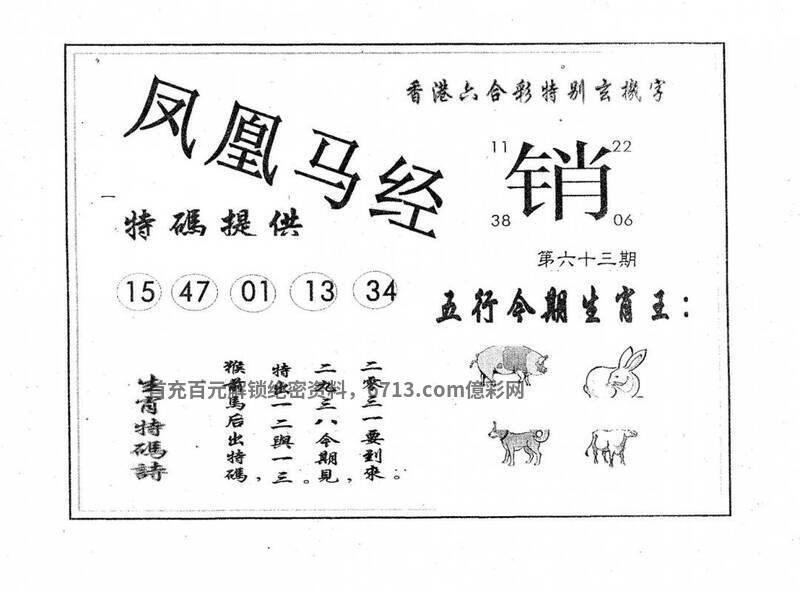 香港六合彩特别玄機字
凤凰马经
11 22
销
38 06
特碼提供
第六十三期
15 47 01 13 34
五行今期生肖王：
生肖特碼詩
猴前馬后出特碼，
特出一二與一三。
二九三八今期見，
二零三一要到來。
首充百元解锁绝密资料，6713.com億彩网